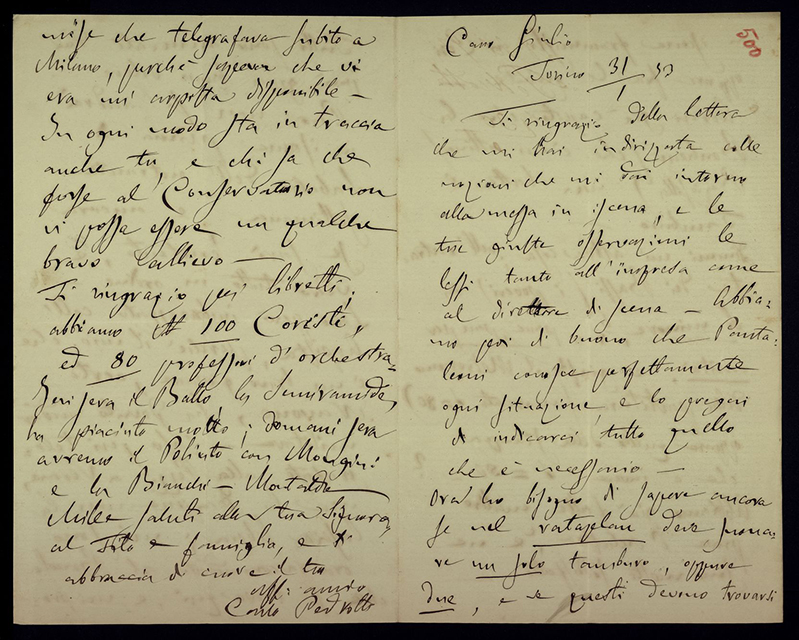 500
Caro Giulio
Torino 31/1 83
Ti ringrazio della lettera
che mi hai indirizzata colle
nozioni che mi dai intorno
alla messa in iscena, e le
tue giuste osservazioni le
lessi tanto all'impresa come
al direttore di scena – Abbia-
mo poi di buono che Panta-
leoni conosce perfettamente
ogni situazione, e lo pregai
d'indicarci tutto quello
che è necessario –
Ora ho bisogno di sapere ancora
se nel rataplan deve suona-
re un solo tamburo, oppure
due, e se questi devono trovarsi
mise che telegrafava subito a
Milano, purchè che vi
era un' arpista disponibile –
In ogni modo sta in traccia
anche tu, e chi sa che
forse al Conservatorio non
vi possa essere un qualche
bravo allievo –
Ti ringrazio pei libretti;
abbiamo 100 Coristi,
ed 80 professori d'orchestra.
Jeri sera il Ballo la Semiramide,
ha piaciuto molto; domani sera
avremo il Poliuto con Mongini
e la Bianchi –
Mille saluti alla tua Signora,
al Tito e famiglia, e t'
abbraccia di cuore il tuo
aff: amico
Carlo Pedrotti